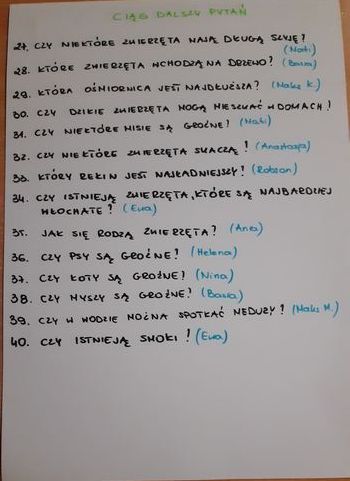 CIĄG DALSZY PYTAŃ
27. CZY NIEKTÓRE ZWIERZĘTA MAJĄ DŁUGĄ SZYJĘ?
(Mati)
28. KTÓRE ZWIERZĘTA WCHODZĄ NA DRZEWO? (Basia)
29. KTÓRA OŚMIORNICA JEST NAJDŁUŻSZA? (Maks K.)
30. CZY DZIKIE ZWIERZĘTA MOGĄ MIESZKAĆ W DOMACH?
31. CZY NIEKTÓRE MISIE SĄ GROŹNE? (Mati)
32. CZY NIEKTÓRE ZWIERZĘTA SKACZĄ? (Anastazja)
33. KTÓRY REKIN JEST NAJŁADNIEJSZY? (Robson)
34. CZY ISTNIEJĄ ZWIERZĘTA, KTÓRE SĄ NAJBARDZIEJ
WŁOCHATE? (Ewa)
35. JAK SIĘ RODZĄ ZWIERZĘTA? (Ania)
36. CZY PSY SĄ GROŹNE? (Helena)
37. CZY KOTY SĄ GROŹNE? (Nina)
38. CZY MYSZY SĄ GROŹNE? (Basia)
39. CZY W WODZIE MOŻNA SPOTKAĆ MEDUZY? (Maks M.)
40. CZY ISTNIEJĄ SMOKI? (Ewa)